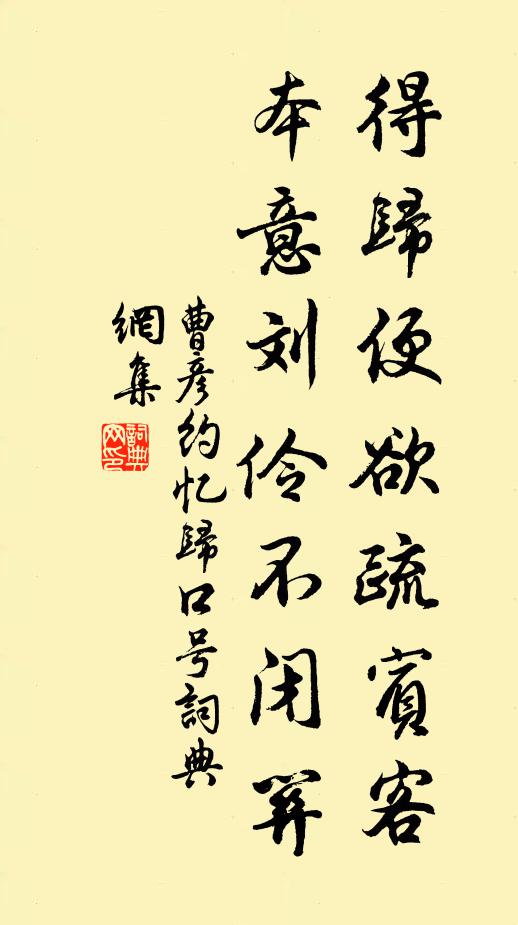 得歸便欲疏賓客
本意刘伶不闭关
曹彦约忆歸口号詞典
網集
詞典
网印